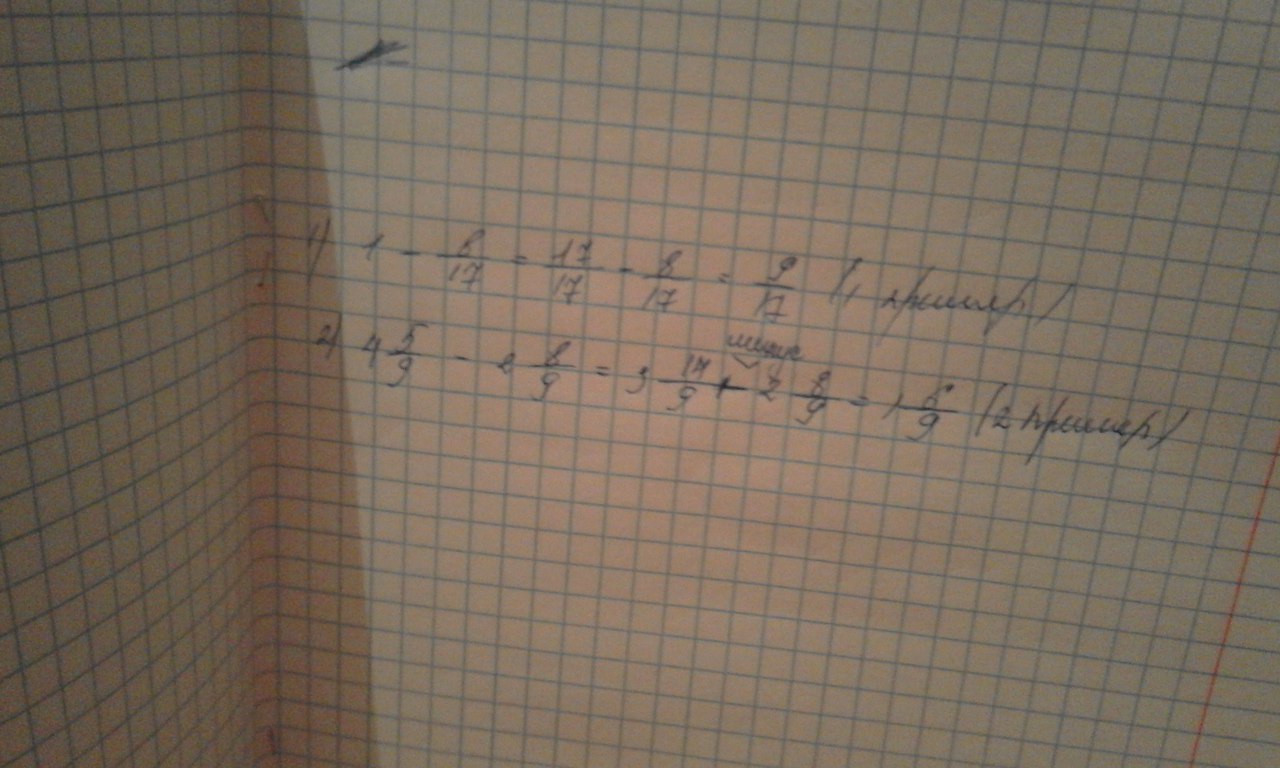 1) 1 - 8/17 = 17/17 - 8/17 = 9/17 (1 пример)
минус
2) 4 5/9 - 2 8/9 = 3 14/9 - 2 8/9 = 1 6/9 (2 пример)